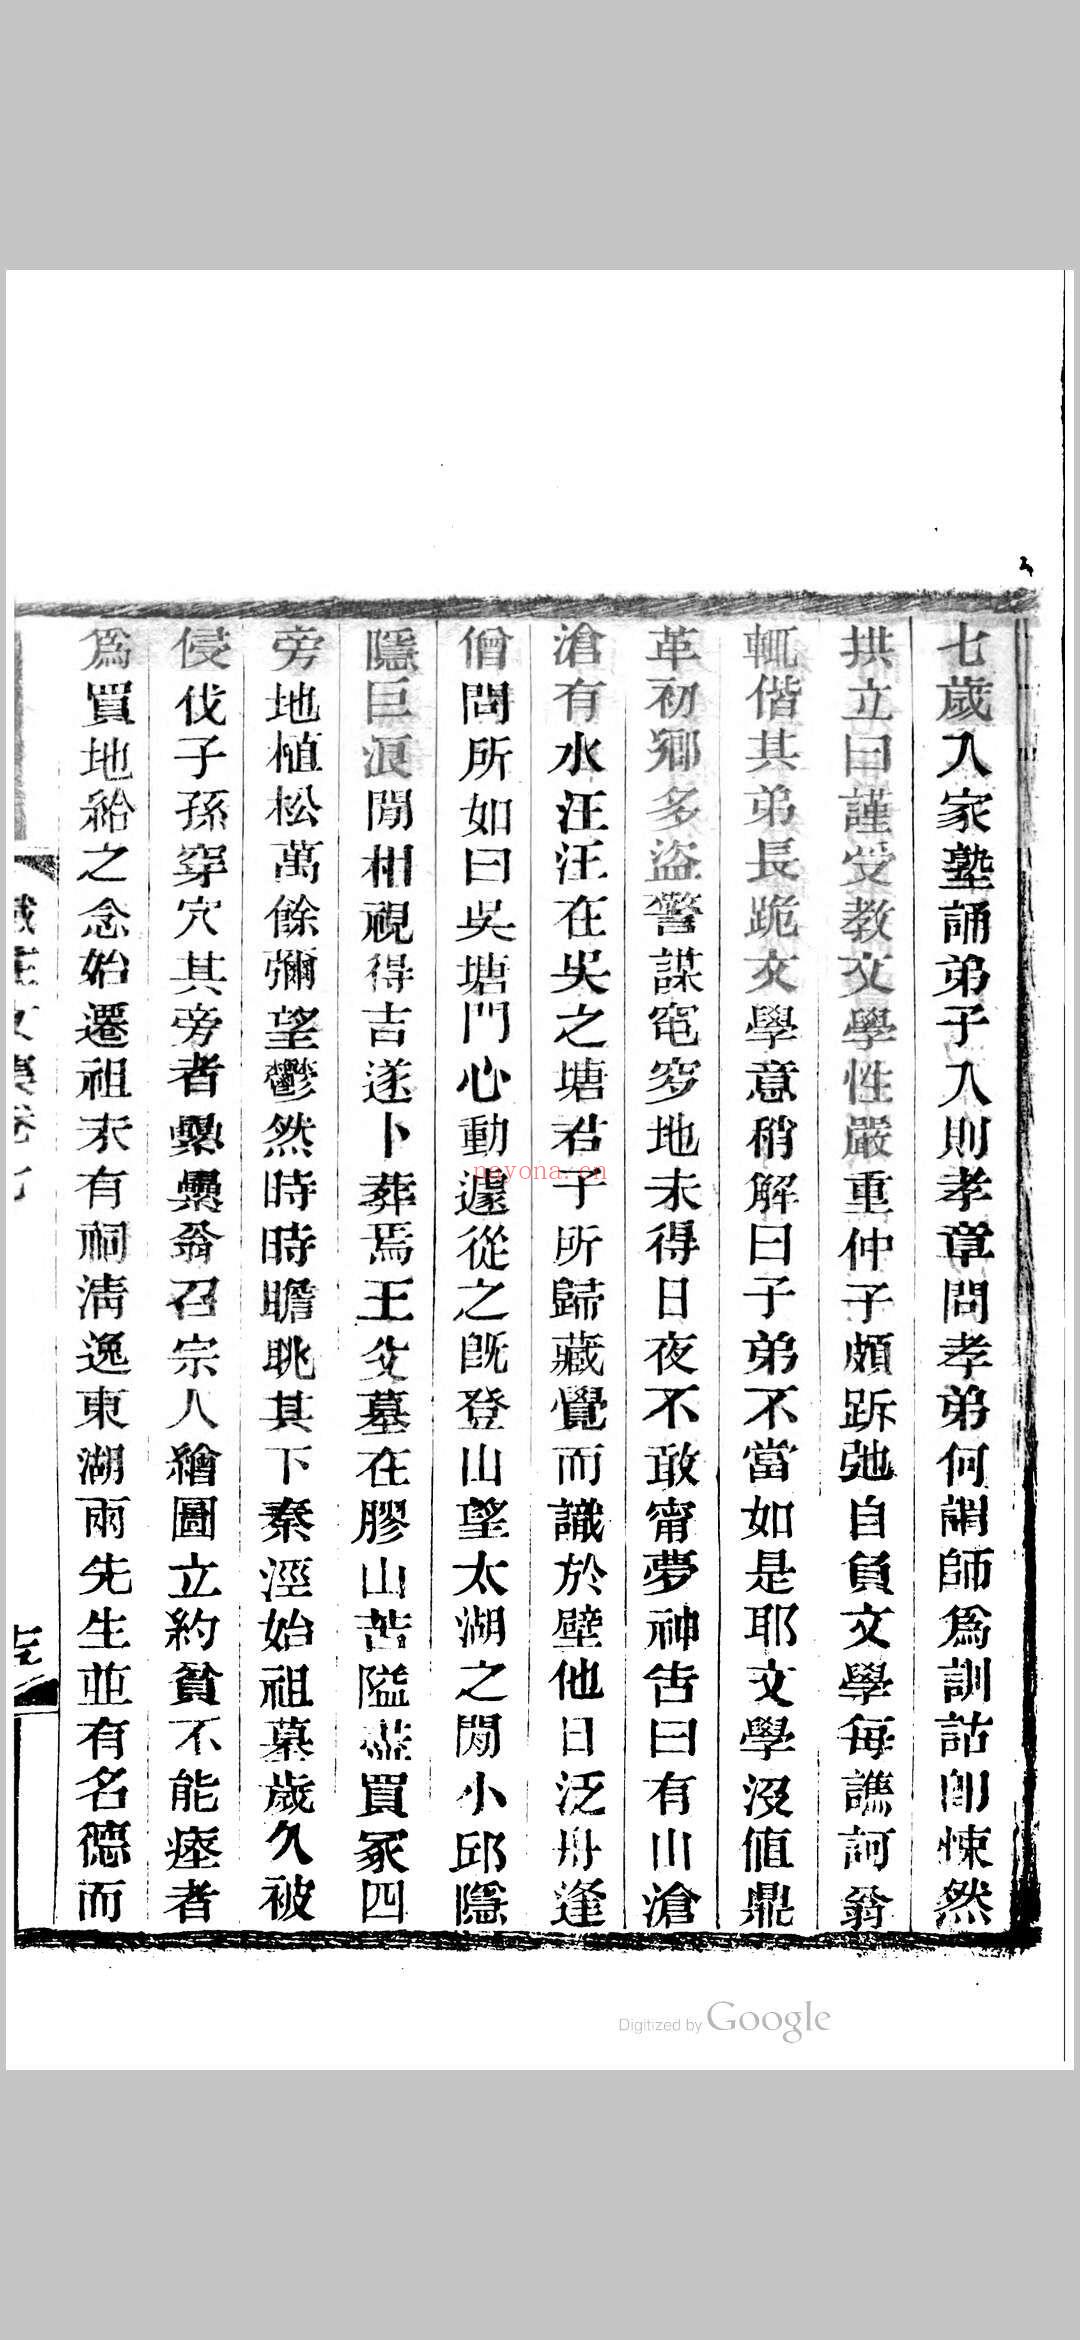 七歲入家塾誦弟子入則孝章問孝弟何謂師爲訓詁卽悚然
拱立曰謹受教文學性嚴重仲子頗跅弛自負文學每譙訶翁
輒偕其弟長跪文學意稍解曰子弟不當如是耶文學沒値鼎
革初鄉多盜警謀窀穸地未得日夜不敢甯夢神告曰有山滄
滄有水汪汪在吳之塘君子所歸藏覺而識於壁他日泛舟逢
僧問所如曰吳塘門心動遽從之旣登山望太湖之閒小邱隱
隱巨浪閒相視得吉遂卜葬焉王父墓在膠山苦隘盡買冢四
旁地植松萬餘彌望鬱然時時瞻眺其下秦涇始祖墓歲久被
侵伐子孫穿穴其旁者纍纍翁召宗人繪圖立約貧不能瘞者
爲買地給之念始遷祖未有祠淸逸東湖兩先生並有名德而
文集卷七
Digitized by Google
nayona.cn